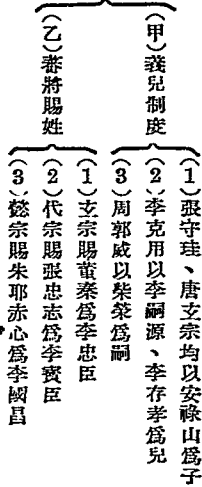 (甲)義兒制度
(1)張守珪、唐玄宗均以安祿山爲子
(2)李克用以李嗣源、李存孝爲兒
(3)周郭威以柴榮爲嗣
(乙)蕃將賜姓
(1)玄宗賜董秦爲李忠臣
(2)代宗賜張忠志爲李寶臣
(3)懿宗賜朱耶赤心爲李國昌